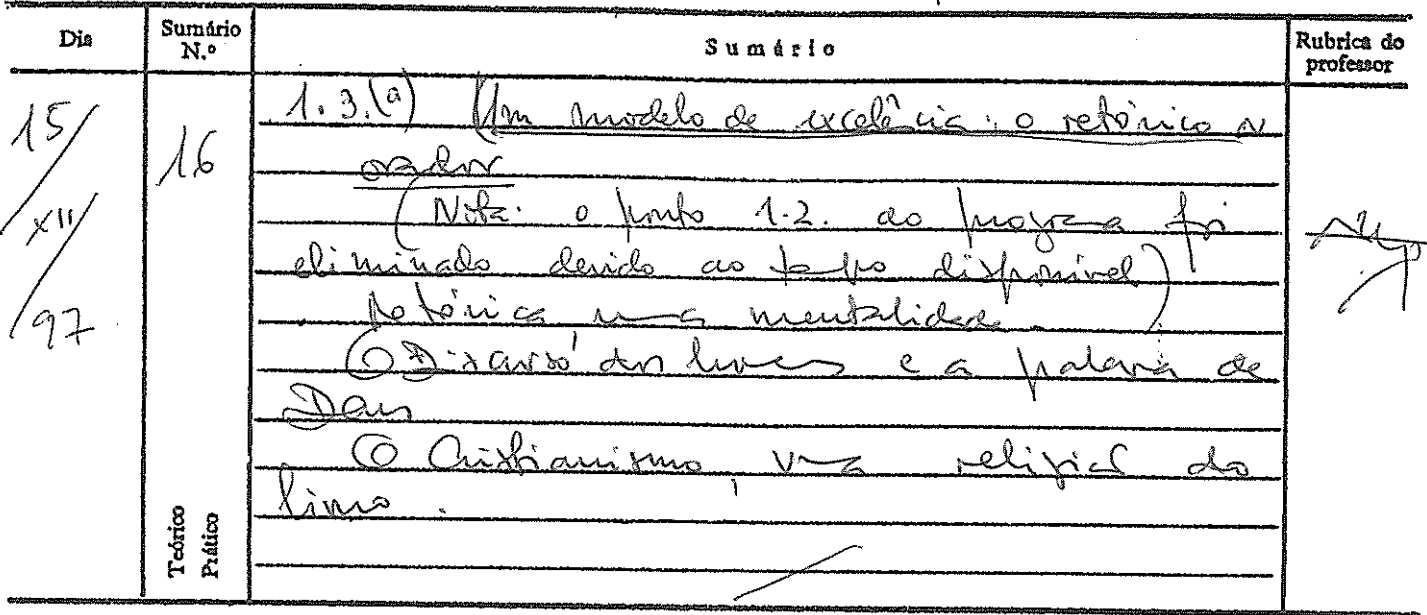 Dia Sumário N.º Sumário Rubrica do professor
15/XII/97
16
1.3.(a) Um modelo de excelência: o retórico
orador
(Nota: o ponto 1.2. do programa foi
eliminado devido ao tempo disponível)
Retórica uma mentalidade.
O Discurso dos livros e a palavra de
Deus
O Cristianismo, uma religião do
livro.
Teórico
Prático